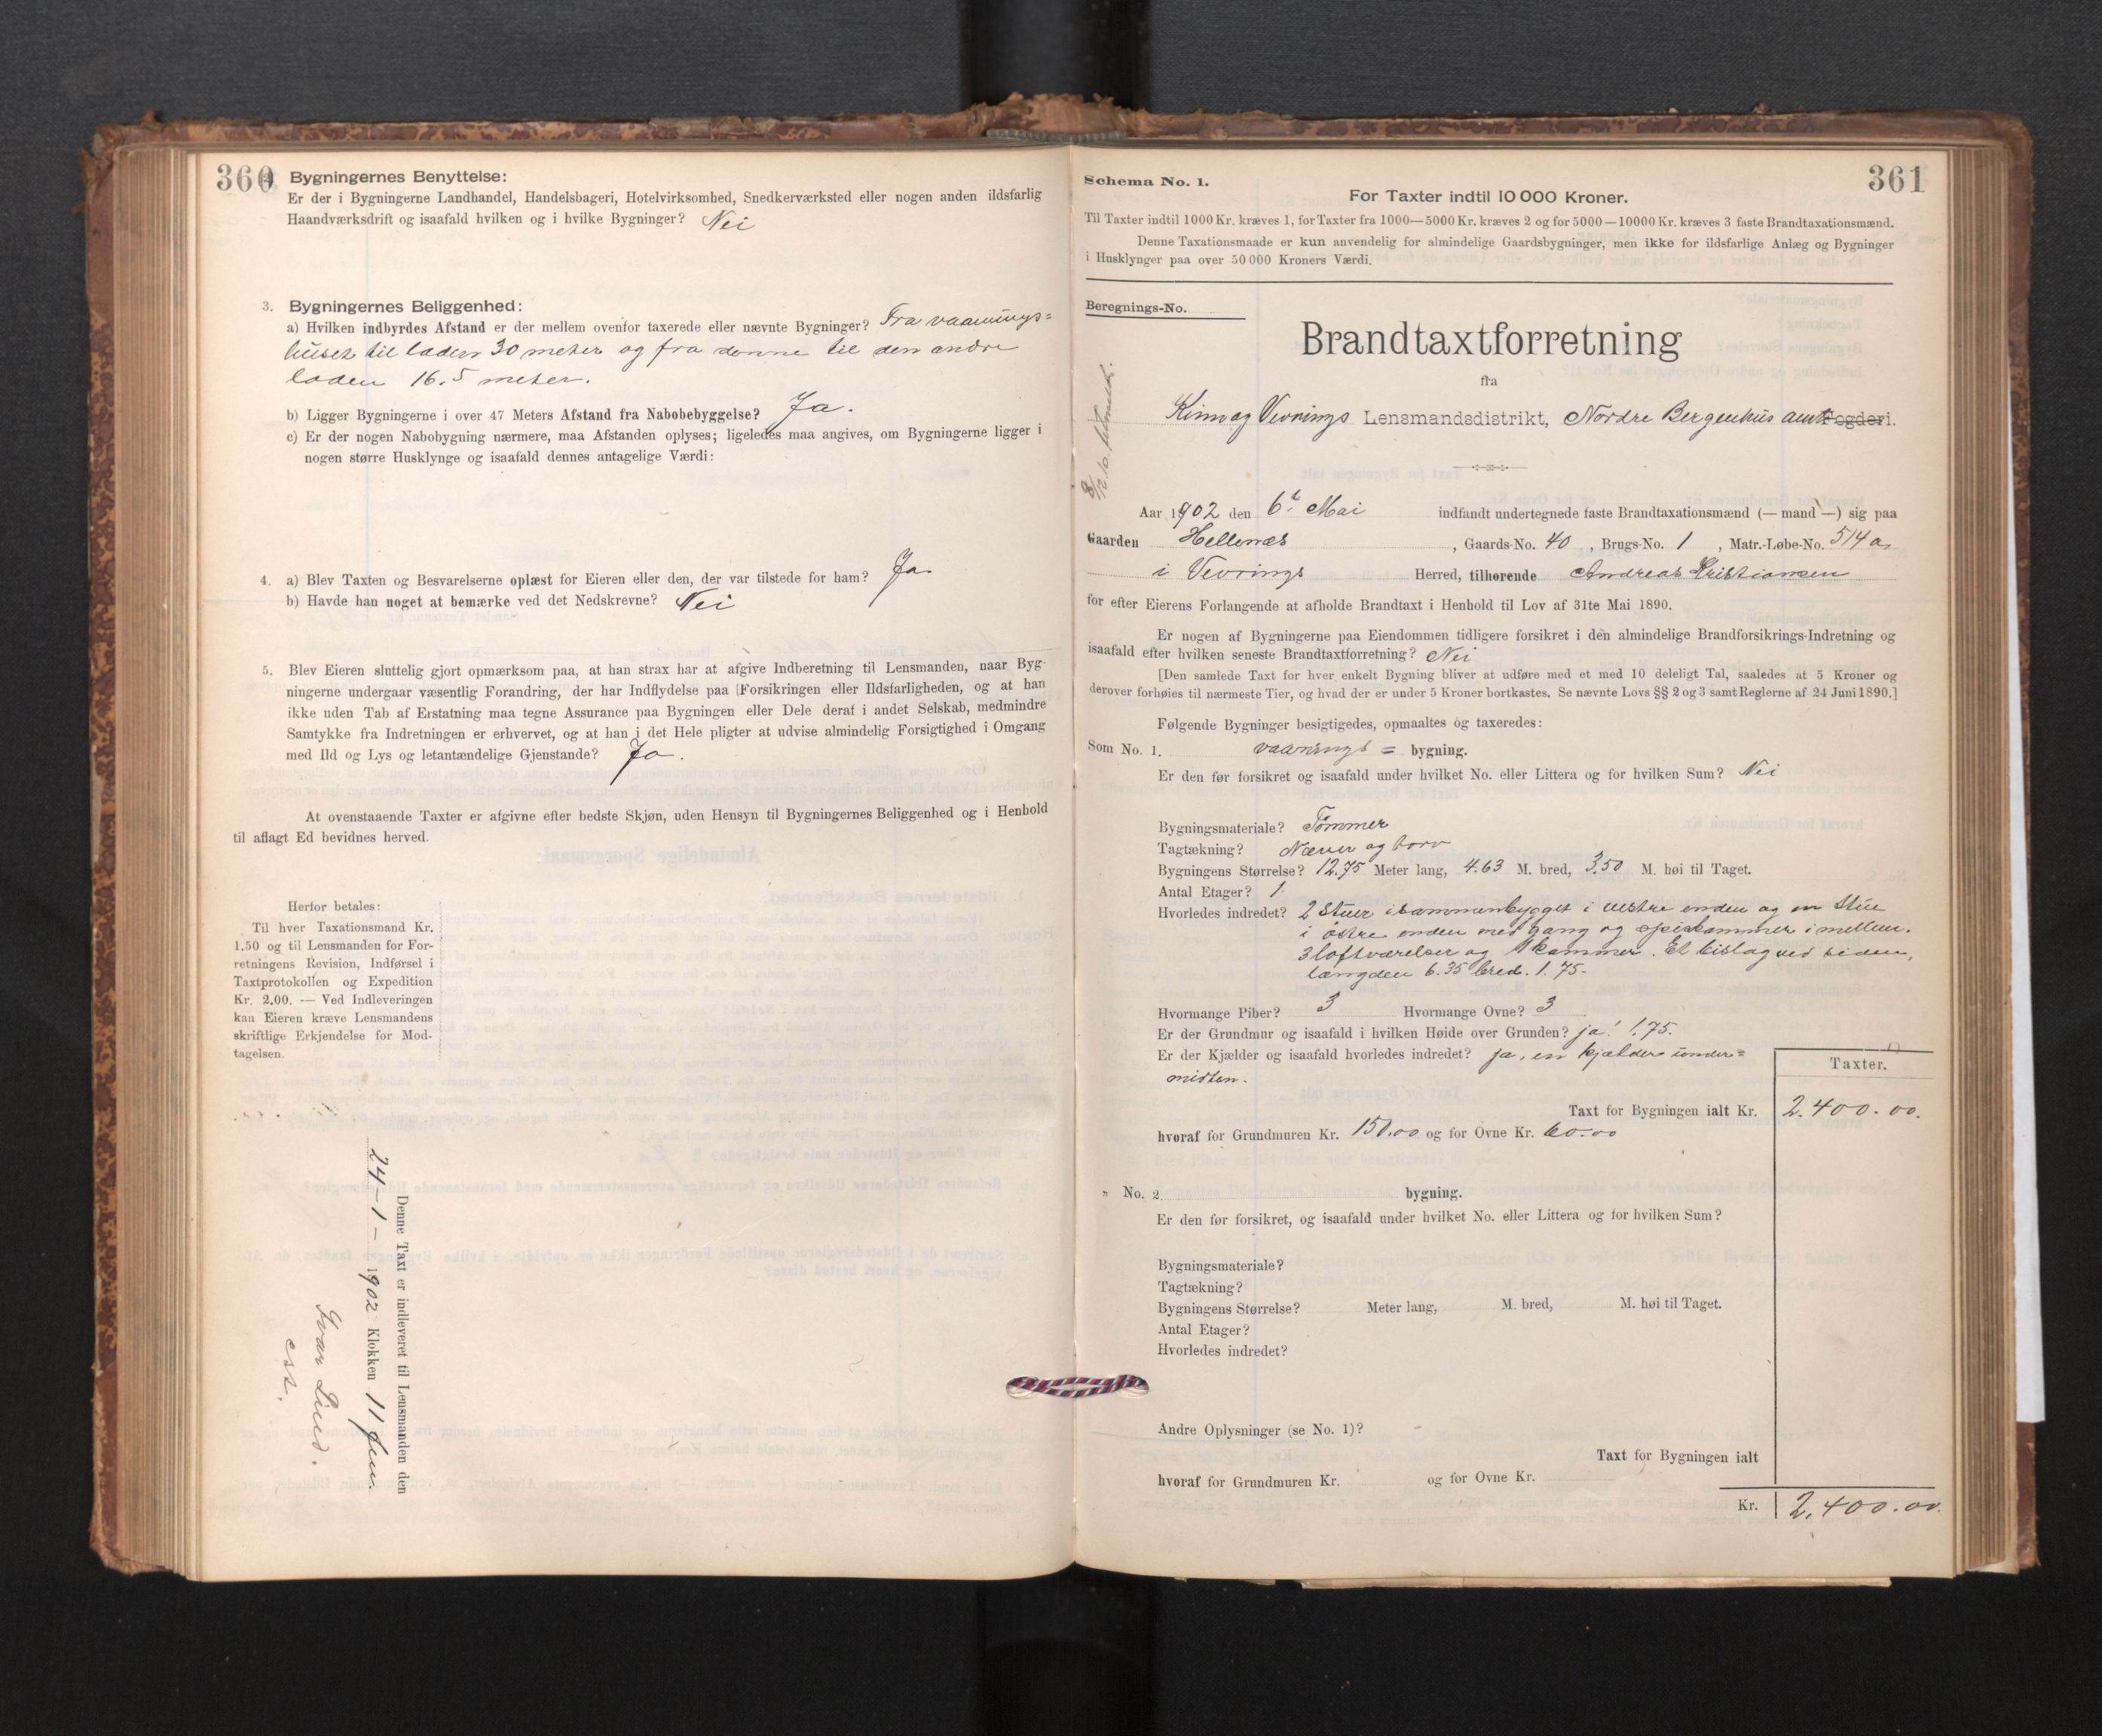 360
2. Bygningernes Benyttelse:
Er der i Bygningerne Landhandel, Handelsbageri, Hotelvirksomhed, Snedkerværksted eller nogen anden ildsfarlig
Haandværksdrift og isaafald hvilken og i hvilke Bygninger? Nei
3. Bygningernes Beliggenhed:
a) Hvilken indbyrdes Afstand er der mellem ovenfor taxerede eller nævnte Bygninger? Fra vaanings=
huset til laden 30 meter og fra denne til den andre
laden 16.5 meter.
b) Ligger Bygningerne i over 47 Meters Afstand fra Nabobebyggelse? Ja.
c) Er der nogen Nabobygning nærmere, maa Afstanden oplyses; ligeledes maa angives, om Bygningerne ligger i
nogen større Husklynge og isaafald dennes antagelige Værdi:
4. a) Blev Taxten og Besvarelserne oplæst for Eieren eller den, der var tilstede for ham? Ja
b) Havde han noget at bemærke ved det Nedskrevne? Nei
5. Blev Eieren sluttelig gjort opmærksom paa, at han strax har at afgive Indberetning til Lensmanden, naar Byg-
ningerne undergaar væsentlig Forandring, der har Indflydelse paa Forsikringen eller Ildsfarligheden, og at han
ikke uden Tab af Erstatning maa tegne Assurance paa Bygningen eller Dele deraf i andet Selskab, medmindre
Samtykke fra Indretningen er erhvervet, og at han i det Hele pligter at udvise almindelig Forsigtighed i Omgang
med Ild og Lys og letantændelige Gjenstande? Ja.
At ovenstaaende Taxter er afgivne efter bedste Skjøn, uden Hensyn til Bygningernes Beliggenhed og i Henhold
til aflagt Ed bevidnes herved.
Herfor betales:
Til hver Taxationsmand Kr.
1.50 og til Lensmanden for For-
retningens Revision, Indførsel i
Taxtprotokollen og Expedition
Kr. 2.00. — Ved Indleveringen
kan Eieren kræve Lensmandens
skriftlige Erkjendelse for Mod-
tagelsen.
Denne Taxt er indleveret til Lensmanden den
24-1- 1902 Klokken 11 fm
Ivar Lied.
361
Schema No. 1.
For Taxter indtil 10 000 Kroner.
Til Taxter indtil 1000 Kr. kræves 1, for Taxter fra 1000—5000 Kr. kræves 2 og for 5000—10000 Kr. kræves 3 faste Brandtaxationsmænd.
Denne Taxationsmaade er kun anvendelig for almindelige Gaardsbygninger, men ikke for ildsfarlige Anlæg og Bygninger
i Husklynger paa over 50 000 Kroners Værdi.
Beregnings-No.
Brandtaxtforretning
fra
Kinn og Vevrings Lensmandsdistrikt, Nordre Bergenhus amt Fogderi.
Aar 1902 den 6t. Mai indfandt undertegnede faste Brandtaxationsmænd (— mand —) sig paa
Gaarden Hellenæs, Gaards-No. 40, Brugs-No. 1, Matr.-Løbe-No. 514 a
i Vevrings Herred, tilhørende Andreas Kristiansen
for efter Eierens Forlangende at afholde Brandtaxt i Henhold til Lov af 31te Mai 1890.
Er nogen af Bygningerne paa Eiendommen tidligere forsikret i den almindelige Brandforsikrings-Indretning og
isaafald efter hvilken seneste Brandtaxtforretning? Nei
[Den samlede Taxt for hver enkelt Bygning bliver at udføre med et med 10 deleligt Tal, saaledes at 5 Kroner og
derover forhøies til nærmeste Tier, og hvad der er under 5 Kroner bortkastes. Se nævnte Lovs §§ 2 og 3 samt Reglerne af 24 Juni 1890.]
Følgende Bygninger besigtigedes, opmaaltes og taxeredes:
Som No. 1. vaanings = bygning.
Er den før forsikret og isaafald under hvilket No. eller Littera og for hvilken Sum? Nei
Bygningsmateriale? Tømmer
Tagtækning? Næver og torv
Bygningens Størrelse? 12.75 Meter lang, 4.63 M. bred, 3.50 M. høi til Taget.
Antal Etager? 1
Hvorledes indredet? 2 Stuer isammenbygget i vestre enden og en Stue
i østre enden med gang og spiskammer i mellem.
3 loftværelser og 1 kammer. Et bislag ved siden,
længden 6.35 bred. 1.75.
Hvormange Piber? 3 Hvormange Ovne? 3
Er der Grundmur og isaafald i hvilken Høide over Grunden? ja! 1.75.
Er der Kjælder og isaafald hvorledes indredet? ja, en kjælder under=
midten.
Taxter.
Taxt for Bygningen ialt Kr. 2.400.00.
hvoraf for Grundmuren Kr. 150.00 og for Ovne Kr. 60.00
" No. 2 bygning.
Er den før forsikret, og isaafald under hvilket No. eller Littera og for hvilken Sum?
Bygningsmateriale?
Tagtækning?
Bygningens Størrelse? Meter lang, M. bred, M. høi til Taget.
Antal Etager?
Hvorledes indredet?
Andre Oplysninger (se No. 1)?
Taxt for Bygningen ialt
hvoraf for Grundmuren Kr. og for Ovne Kr.
Kr. 2.400.00.